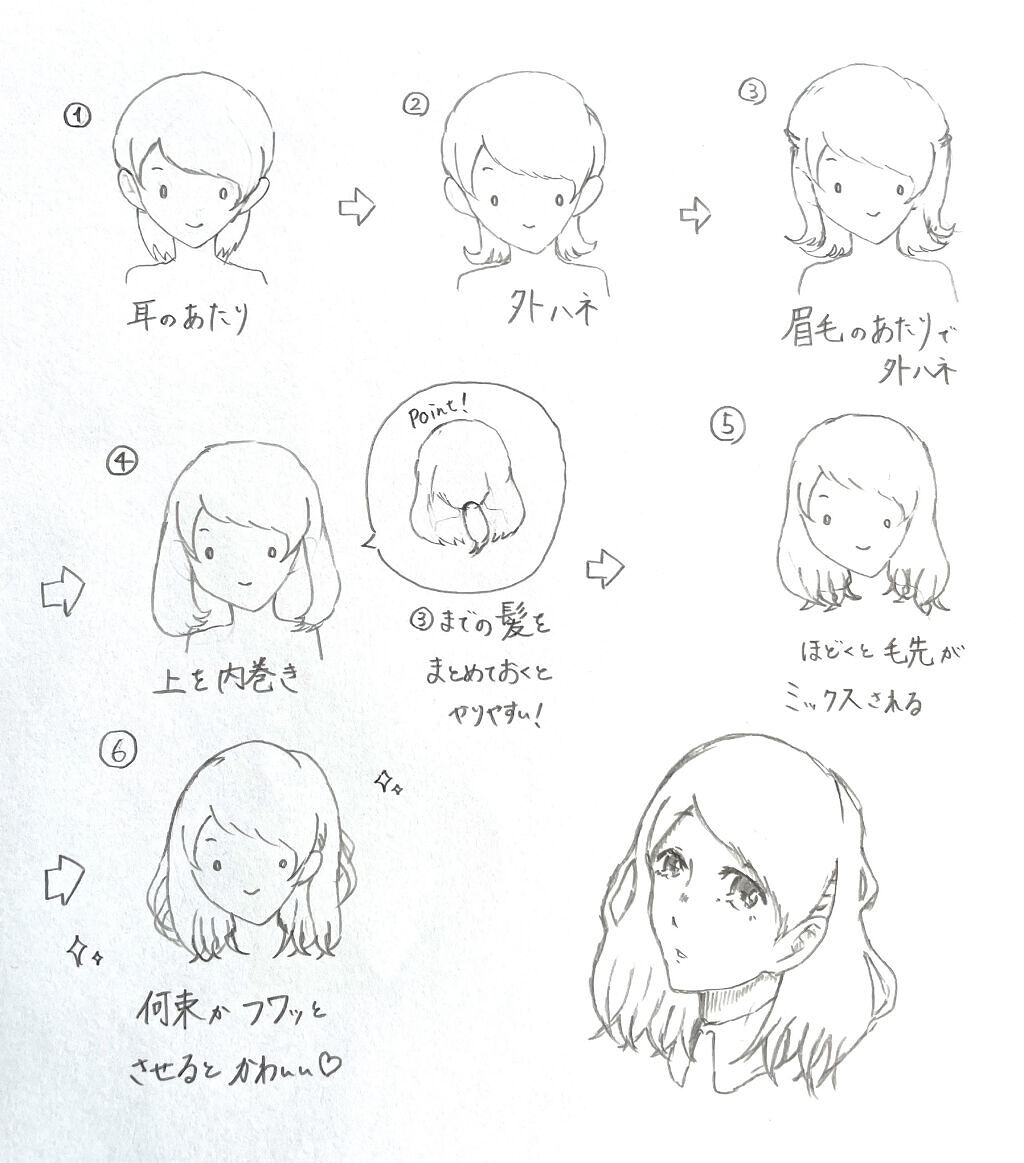 ①
耳のあたり
②
外ハネ
③
眉毛のあたりで
外ハネ
④
上を内巻き
Point!
③までの髪を
まとめておくと
やりやすい!
⑤
ほどくと毛先が
ミックスされる
⑥
何束かフワッと
させるとかわいい♡